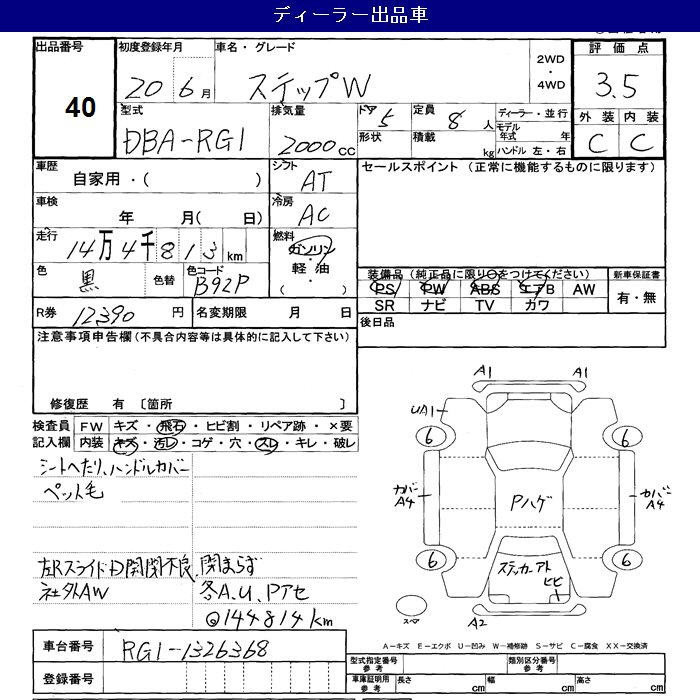 ディーラー出品車
出品番号
40
初度登録年月
20 6月
車名・グレード
ステップW
2WD
・
4WD
評価点
3.5
外装 内装
C C
型式
DBA-RG1
排気量
2000cc
ドア 5
形状
定員 8人
積載 kg
ディーラー・並行
モデル年式 年
ハンドル 左・右
車歴
自家用・( )
シフト
AT
車検
年 月( 日)
冷房
AC
走行
14万4千813km
燃料
ガソリン
・
軽油
( )
色
黒
色替
色コード
B92P
R券 12390円
名変期限 月 日
セールスポイント (正常に機能するものに限ります)
装備品(純正品に限り○をつけてください)
PS PW ABS エアB AW
SR ナビ TV カワ
新車保証書
有・無
後日品
注意事項申告欄(不具合内容等は具体的に記入して下さい)
修復歴 有 〔箇所
検査員記入欄
FW キズ・飛石・ヒビ割・リペア跡・×要
内装 キズ・汚レ・コゲ・穴・スレ・キレ・破レ
シートへたり、ハンドルカバー
ペット毛
左RスライドD開閉不良、閉まらず
社外AW 各A.U.Pアセ
@144814km
A1 A1
UA1
6 6
カバーA4
Pハゲ
カバーA4
6 6
ステッカーアト
ヒビ
スペア
A2
A-キズ E-エクボ U-凹み W-補修跡 S-サビ C-腐食 XX-交換済
車台番号 RG1-1326368
登録番号
型式指定番号 参考
類別区分番号 参考
車庫証明用 参考
長さ cm 幅 cm 高さ cm